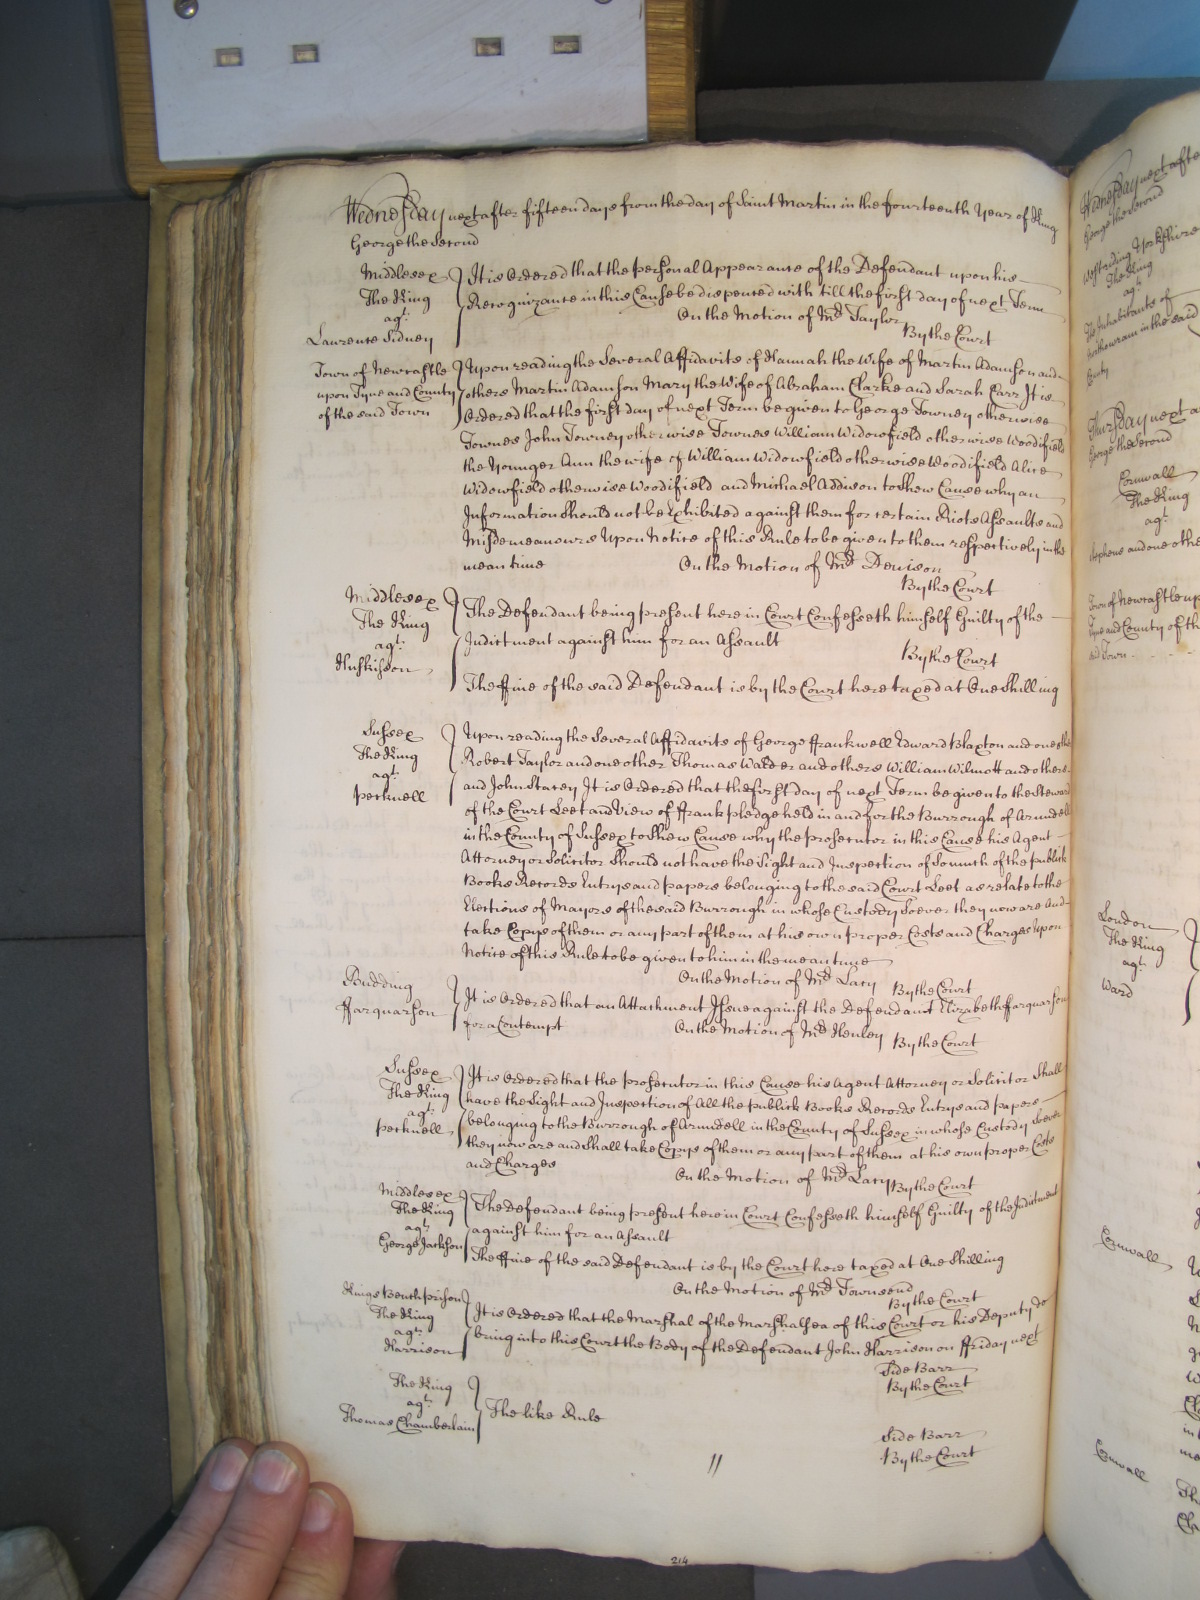 Wednesday next after fifteen days from the day of Saint Martin in the fourteenth Year of King
George the Second
Middlesex
The King
agt.
Laurence Sidney
It is Ordered that the personal Appearance of the Defendant upon his
Recognizance in this Cause be dispenced with till the first day of next Term
On the Motion of Mr. Taylor
By the Court
Town of Newcastle
upon Tyne and County
of the said Town
Upon reading the Several Affidavits of Hannah the Wife of Martin Adamson and
others Martin Adamson Mary the Wife of Abraham Clarke and Sarah Carr It is
Ordered that the first day of next Term be given to George Towney otherwise
Townes John Towney otherwise Townes William Widowfield otherwise Woodifield
the Younger Ann the wife of William Widowfield otherwise Woodifield Alice
Widowfield otherwise Woodifield and Michael Addison to Shew Cause why an
Information Should not be Exhibited against them for certain Riots Assaults and
Misdemeanours Upon Notice of this Rule to be given to them respectively in the
mean time
On the Motion of Mr. Denison
By the Court
Middlesex
The King
agt.
Huskisson
The Defendant being present here in Court Confesseth himself Guilty of the
Indictment against him for an Assault
By the Court
The ffine of the said Defendant is by the Court here taxed at One Shilling
Sussex
The King
agt.
Pecknell
Upon reading the Several Affidavits of George ffrankwell Edward Blaxton and one othr
Robert Taylor and one other Thomas Walder and others William Wilmott and others
and John Starey It is Ordered that the first day of next Term be given to the Steward
of the Court Leet and View of ffrank pledge held in and for the Burrough of Arundell
in the County of Sussex to Shew Cause why the prosecutor in this Cause his Agent
Attorney or Solicitor Should not have the Sight and Inspection of So much of the publick
Books Records Entrys and papers belonging to the said Court Leet as relate to the
Elections of Mayors of the said Burrough in whose Custody Soever they now are And
take Copys of them or any part of them at his own proper Costs and Charges Upon
Notice of this Rule to be given to him in the mean time
On the Motion of Mr. Lacy
By the Court
Budding
ffarquarson
It is Ordered that an Attachment Issue against the Defendant Elizabeth ffarquarson
for a Contempt
On the Motion of Mr. Henley
By the Court
Sussex
The King
agt.
Pecknell
It is Ordered that the prosecutor in this Cause his Agent Attorney or Solicitor Shall
have the Sight and Inspection of All the publick Books Records Entrys and papers
belonging to the Burrough of Arundell in the County of Sussex in whose Custody Soever
they now are and Shall take Copys of them or any part of them at his own proper Costs
and Charges
On the Motion of Mr. Lacy
By the Court
Middlesex
The King
agt.
George Jackson
The Defendant being present here in Court Confesseth himself Guilty of the Indictment
against him for an Assault
The ffine of the said Defendant is by the Court here taxed at One Shilling
On the Motion of Mr. Townsend
By the Court
Kings Bench prison
The King
agt.
Harrison
It is Ordered that the Marshal of the Marshalsea of this Court or his Deputy do
bring into this Court the Body of the Defendant John Harrison on ffriday next
Side Barr
By the Court
The King
agt.
Thomas Chamberlain
The like Rule
Side Barr
By the Court
214
Wednesday next after
George the Second
West riding Yorkshire
The King
agt.
The Inhabitants of
in the said
County
Thursday next a
George the Second
Cornwall
The King
agt.
Stephens and one othe
Town of Newcastle up
Tyne and County of th
said Town
London
The King
agt.
Ward
Cornwall
Cornwall